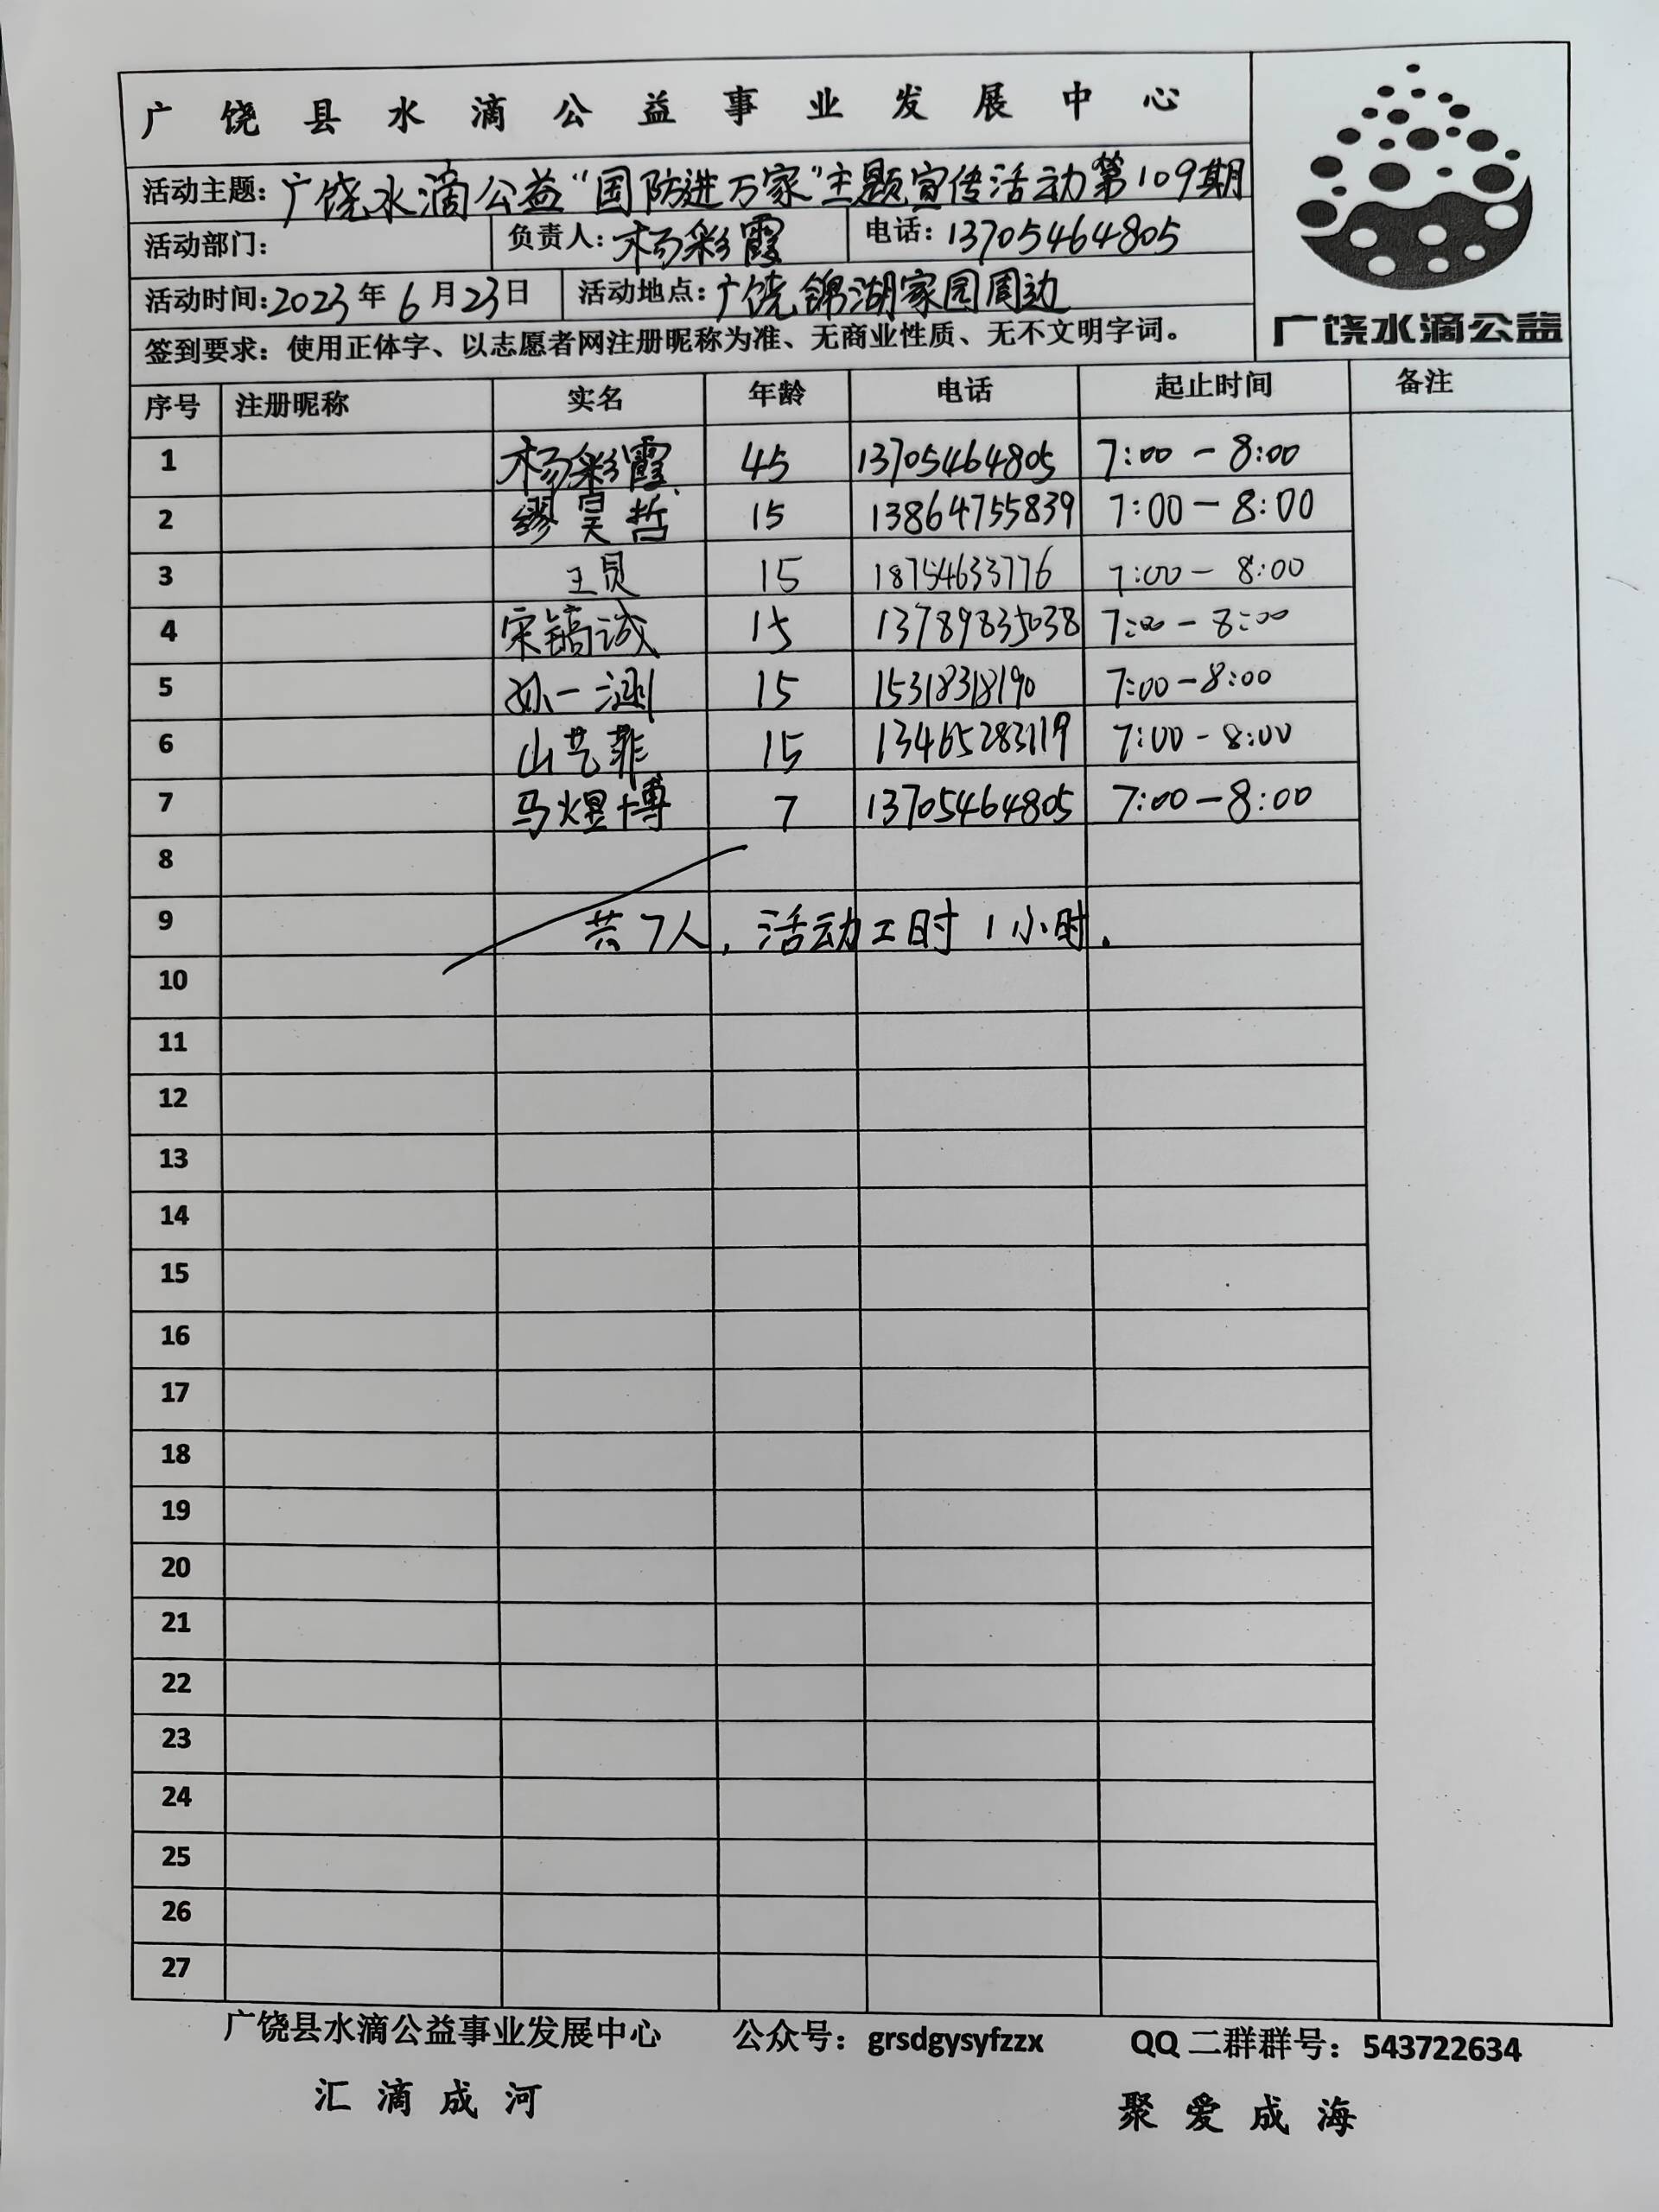 广饶县水滴公益事业发展中心
活动主题:广饶水滴公益“国防进万家”主题宣传活动第109期
活动部门: 负责人:杨彩霞 电话:13705464805
活动时间:2023年6月23日 活动地点:广饶锦湖家园周边
签到要求:使用正体字、以志愿者网注册昵称为准、无商业性质、无不文明字词。
广饶水滴公益
序号 注册昵称 实名 年龄 电话 起止时间 备注
1 杨彩霞 45 13705464805 7:00-8:00
2 缪昊哲 15 13864755839 7:00-8:00
3 王贝 15 18754633776 7:00-8:00
4 宋镐诚 15 13789835038 7:00-8:00
5 孙一涵 15 15318318190 7:00-8:00
6 山艺菲 15 13465283119 7:00-8:00
7 马煜博 7 13705464805 7:00-8:00
8
9 共7人,活动工时1小时.
10
11
12
13
14
15
16
17
18
19
20
21
22
23
24
25
26
27
广饶县水滴公益事业发展中心 公众号:grsdgysyfzzx QQ二群群号:543722634
汇滴成河 聚爱成海